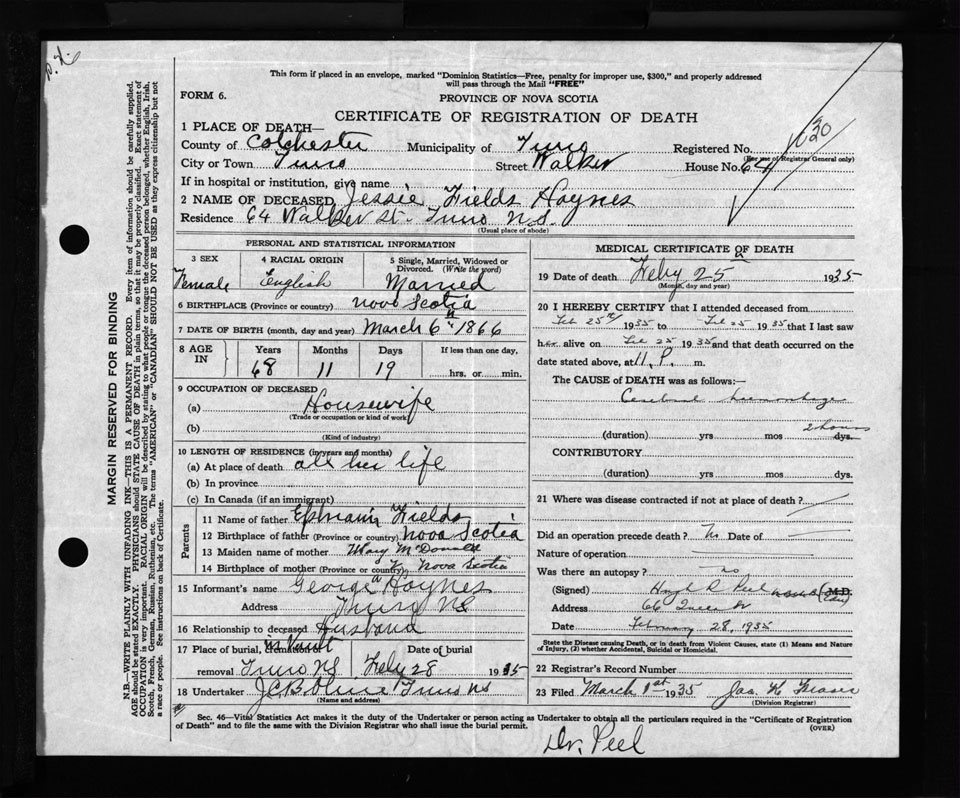 This form if placed in an envelope, marked "Dominion Statistics—Free, penalty for improper use, $300," and properly addressed
will pass through the Mail "FREE"
FORM 6.
PROVINCE OF NOVA SCOTIA
CERTIFICATE OF REGISTRATION OF DEATH
1 PLACE OF DEATH—
County of Colchester Municipality of Truro Registered No.
(For use of Registrar General only)
City or Town Truro Street Walker House No. 64
If in hospital or institution, give name
2 NAME OF DECEASED Jessie Fields Haynes
Residence 64 Walker St. Truro N.S.
(Usual place of abode)
PERSONAL AND STATISTICAL INFORMATION
3 SEX 4 RACIAL ORIGIN 5 Single, Married, Widowed or Divorced. (Write the word)
Female English Married
6 BIRTHPLACE (Province or country) Nova Scotia
7 DATE OF BIRTH (month, day and year) March 6th 1866
8 AGE IN Years Months Days If less than one day,
68 11 19 hrs. or min.
9 OCCUPATION OF DECEASED
(a) Housewife
(Trade or occupation or kind of work)
(b)
(Kind of industry)
10 LENGTH OF RESIDENCE (in years and months)
(a) At place of death all her life
(b) In province
(c) In Canada (if an immigrant)
Parents
11 Name of father Ephraim Fields
12 Birthplace of father (Province or country) Nova Scotia
13 Maiden name of mother Mary McDonald
14 Birthplace of mother (Province or country) Nova Scotia
15 Informant's name George Haynes
Address Truro NS
16 Relationship to deceased Husband
17 Place of burial, cremation or removal in vault Truro NS Date of burial Feby 28 1935
18 Undertaker Truro NS
(Name and address)
MEDICAL CERTIFICATE OF DEATH
19 Date of death Feby 25 1935
(Month, day and year)
20 I HEREBY CERTIFY that I attended deceased from
Feb 25th 1935 to Feb 25 1935 that I last saw
her alive on Feb 25 1935 and that death occurred on the
date stated above, at 11. P. m.
The CAUSE of DEATH was as follows:—
Cerebral hemorrhage
2 hours
(duration) yrs mos dys.
CONTRIBUTORY
(duration) yrs mos dys.
21 Where was disease contracted if not at place of death?
Did an operation precede death? No Date of
Nature of operation
Was there an autopsy? no
(Signed) Peel M.D.
Address 66 Queen St
Date February 28, 1935
State the Disease causing Death, or in death from Violent Causes, state (1) Means and Nature of Injury, (2) whether Accidental, Suicidal or Homicidal.
22 Registrar's Record Number
23 Filed March 1st 1935 Jas. H Fraser
(Division Registrar)
Sec. 46—Vital Statistics Act makes it the duty of the Undertaker or person acting as Undertaker to obtain all the particulars required in the "Certificate of Registration
of Death" and to file the same with the Division Registrar who shall issue the burial permit.
(OVER)
Dr. Peel
MARGIN RESERVED FOR BINDING
N.B.—WRITE PLAINLY WITH UNFADING INK—THIS IS A PERMANENT RECORD. Every item of information should be carefully supplied.
AGE should be stated EXACTLY. PHYSICIANS should STATE CAUSE OF DEATH in plain terms, so that it may be properly classified. Exact statement of
OCCUPATION is very important. RACIAL ORIGIN will be described by stating to what people or tongue the deceased person belonged, whether English, Irish,
Scotch, French, German, Russian, Ruthenian, etc. The terms "AMERICAN" or "CANADIAN" SHOULD NOT BE USED as they express citizenship but not
a race or people. See instructions on back of Certificate.